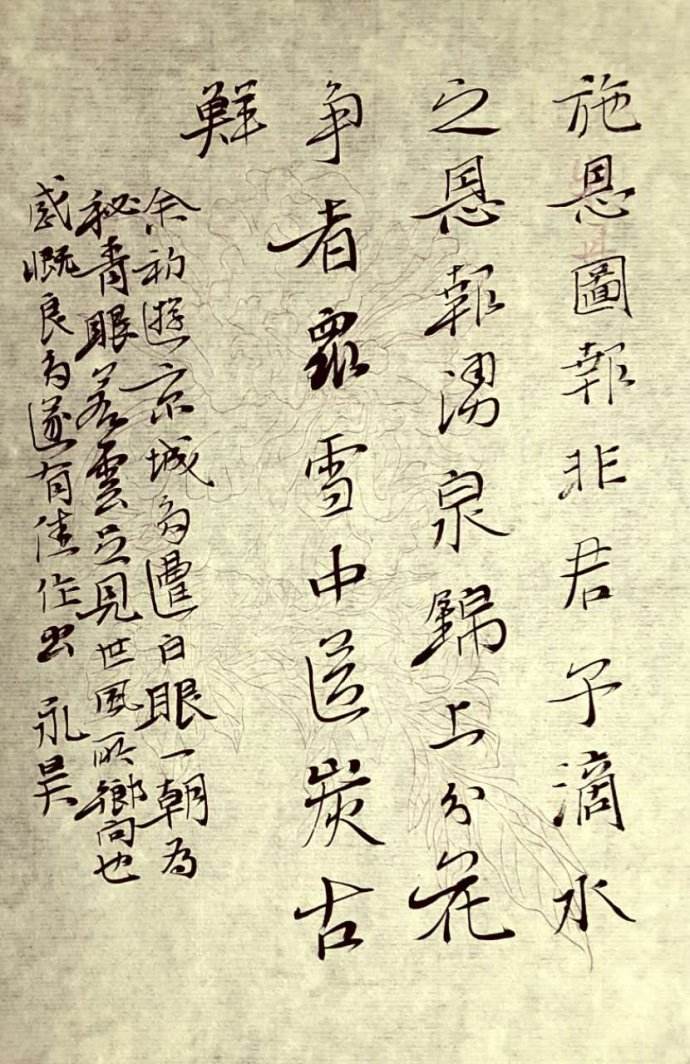 施恩圖報非君子滴水
之恩報湧泉錦上分花
争者眾雪中送炭古
鮮
余初遊京城多遭白眼一朝為
秘青眼若雲足見世風所嚮也
感慨良多遂有佳作出 永昊